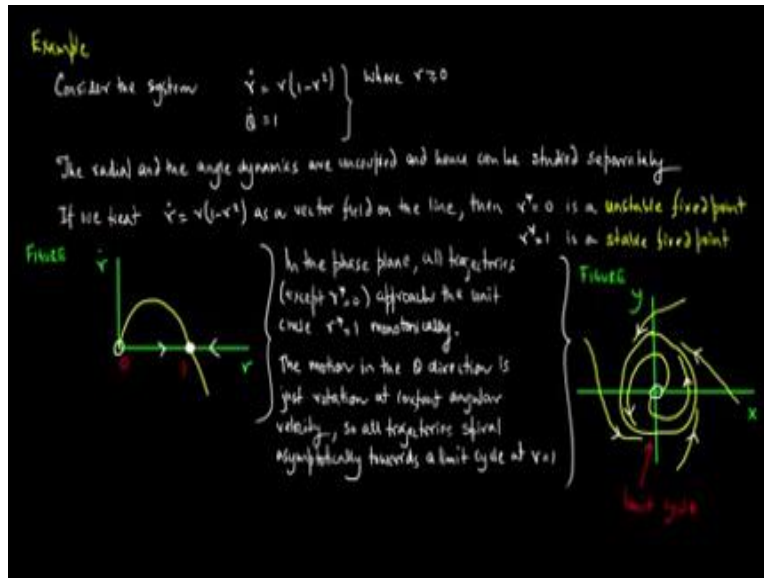 Example
Consider the system ṙ = r(1-r²) } where r ≥ 0
θ̇ = 1
The radial and the angle dynamics are uncoupled and hence can be studied separately
If we treat ṙ = r(1-r²) as a vector field on the line, then r* = 0 is a unstable fixed point
r* = 1 is a stable fixed point
FIGURE
ṙ
0
1
r
In the phase plane, all trajectories
(except r* = 0) approach the unit
circle r* = 1 monotonically.
The motion in the θ direction is
just rotation at constant angular
velocity, so all trajectories spiral
asymptotically towards a limit cycle at r=1
FIGURE
y
x
limit cycle